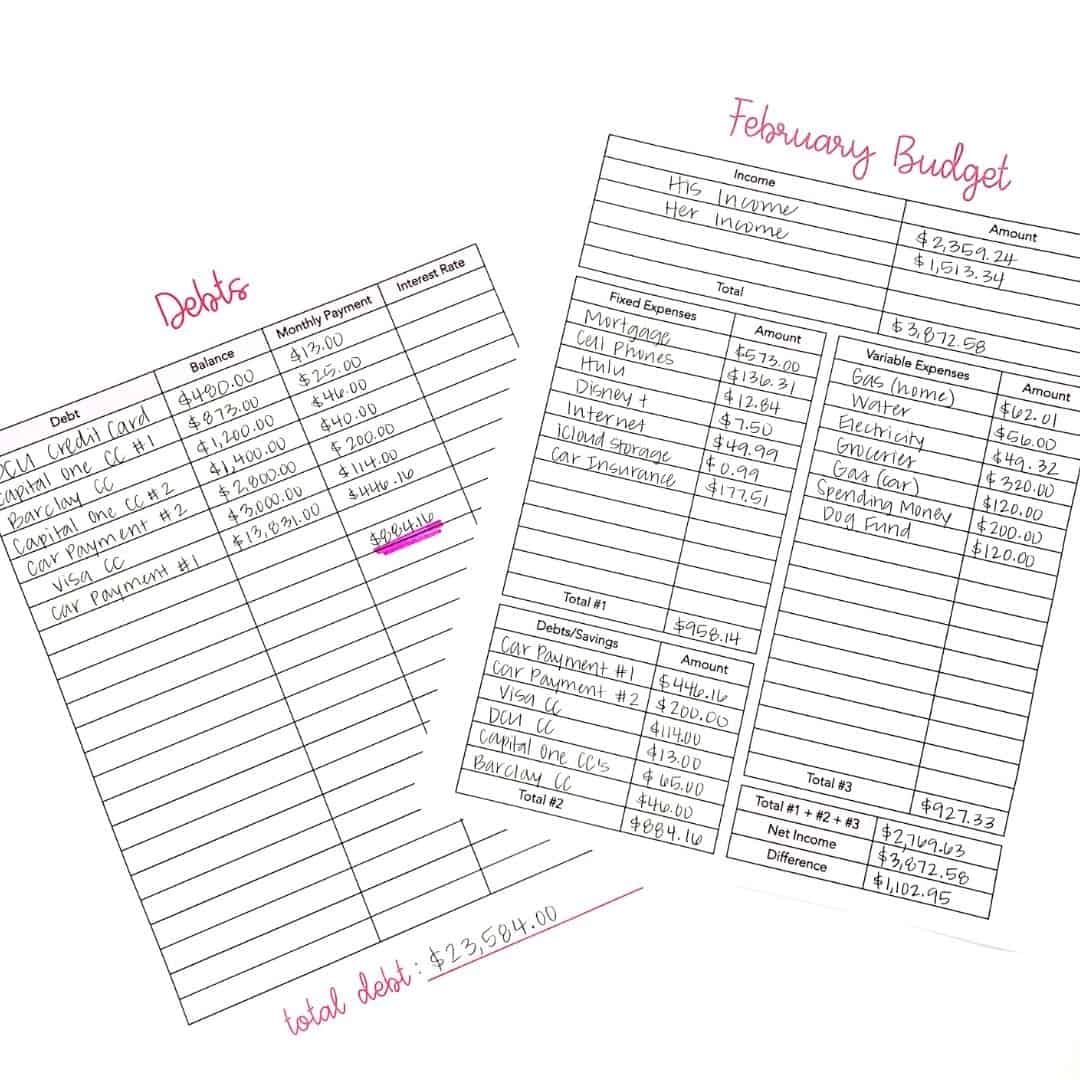 Debts
Debt Balance Monthly Payment Interest Rate
DCU Credit Card $480.00 $13.00
Capital One CC #1 $873.00 $25.00
Barclay CC $1,200.00 $46.00
Capital One CC #2 $1,400.00 $40.00
Car Payment #2 $2,800.00 $200.00
Visa CC $3,000.00 $114.00
Car Payment #1 $13,831.00 $446.16
$884.16
total debt: $23,584.00
February Budget
Income Amount
His Income $2,359.24
Her Income $1,513.34
Total $3,872.58
Fixed Expenses Amount
Mortgage $573.00
Cell Phones $136.31
Hulu $12.84
Disney + $7.50
Internet $49.99
iCloud Storage $0.99
Car Insurance $177.51
Total #1 $958.14
Debts/Savings Amount
Car Payment #1 $446.16
Car Payment #2 $200.00
Visa CC $114.00
DCU CC $13.00
Capital One CC's $65.00
Barclay CC $46.00
Total #2 $884.16
Variable Expenses Amount
Gas (home) $62.01
Water $56.00
Electricity $49.32
Groceries $320.00
Gas (car) $120.00
Spending Money $200.00
Dog Fund $120.00
Total #3 $927.33
Total #1 + #2 + #3 $2,769.63
Net Income $3,872.58
Difference $1,102.95